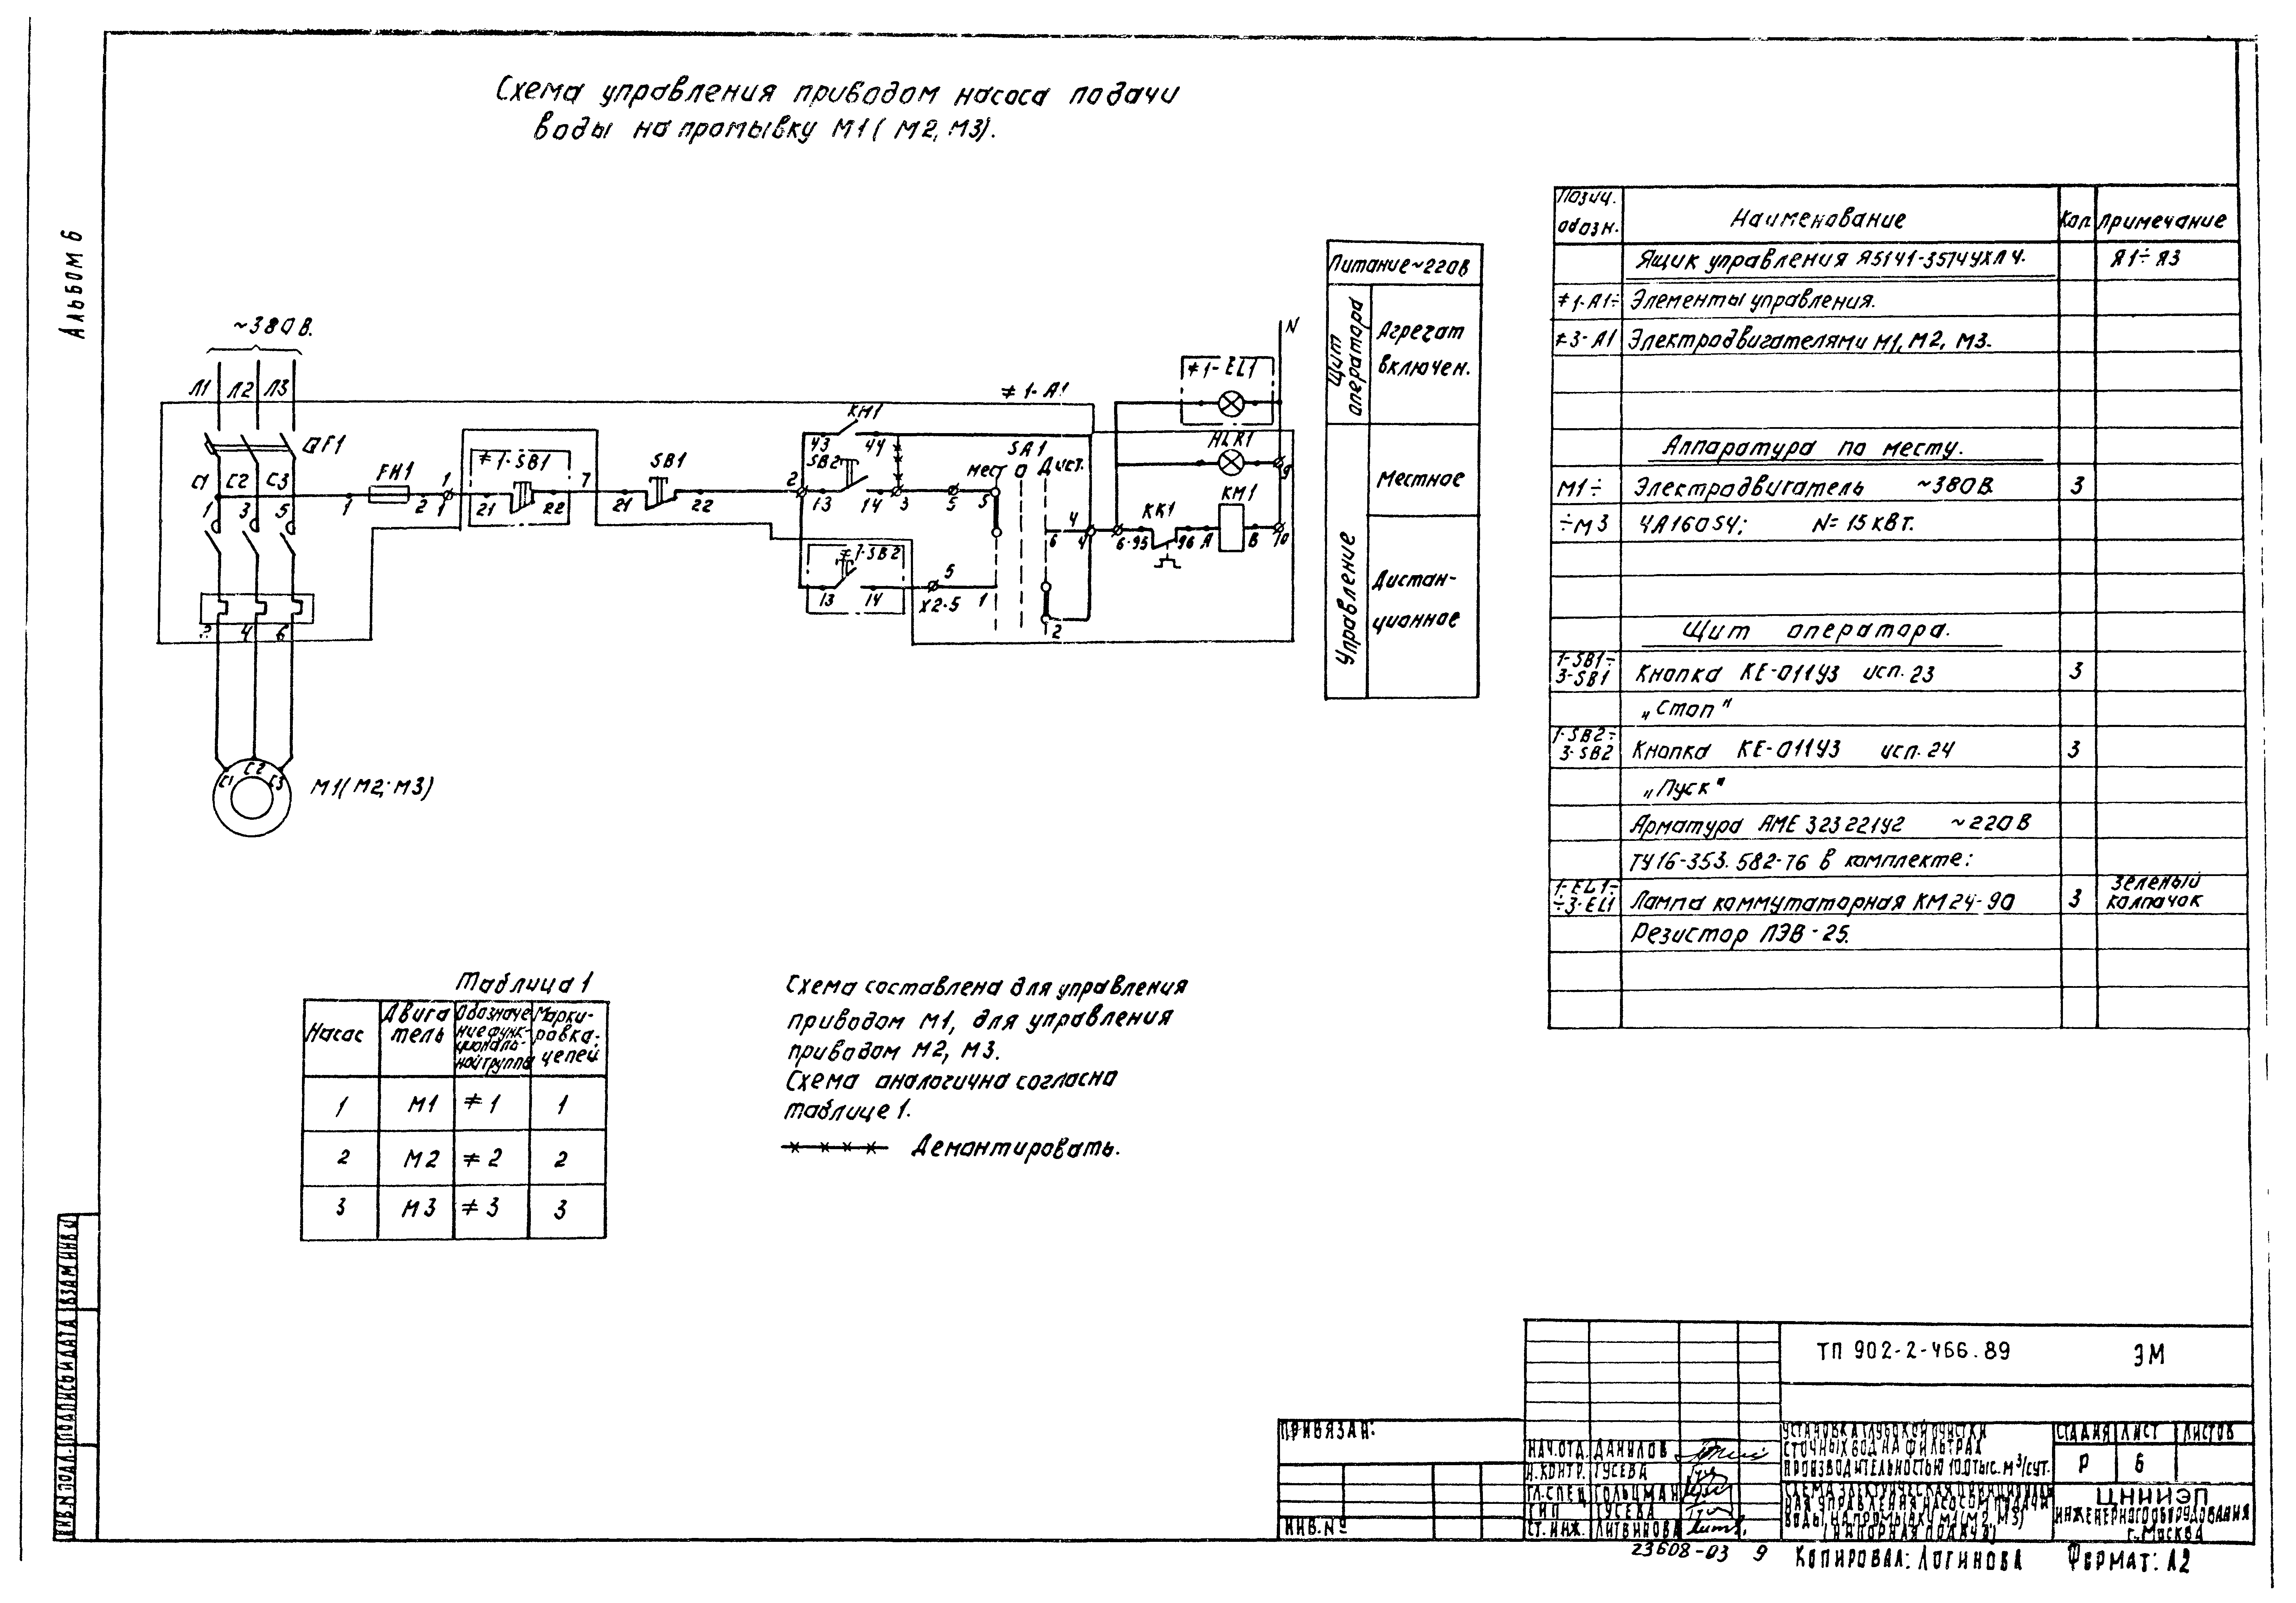 Альбом 6
Схема управления приводом насоса подачи
воды на промывку М1 ( М2, М3).
~380В.
Л1 Л2 Л3
QF1
С1 С2 С3
1 3 5
4 6
С1 С2 С3
М1(М2; М3)
FH1
1 2 1
1
≠1-SB1
21 22
7
SB1
21 22
2
KM1
43 44
SB2
13 14
3
5
5
≠1-SB2
13 14
5
X2-5
1
≠1-А1
SA1
мест 0 Дист.
6 4 4
2
≠1-EL1
HLR1
N
9
KK1
6-95 96
KM1
А В 10
Питание~220В
Щит оператора
Агрегат
включен.
Управление
Местное
Дистан-
ционное
Позиц. обозн. Наименование Кол Примечание
Ящик управления Я5141-3574УХЛ4. Я1÷Я3
≠1-А1÷ Элементы управления.
≠3-А1 Электродвигателями М1, М2, М3.
Аппаратура по месту.
М1÷ Электродвигатель ~380В. 3
÷М3 4А160S4; N=15кВт.
Щит оператора.
1-SB1÷ 3-SB1 Кнопка КЕ-011У3 исп.23 3
„Стоп"
1-SB2÷ 3-SB2 Кнопка КЕ-011У3 исп.24 3
„Пуск"
Арматура АМЕ 323221У2 ~220В
ТУ16-353.582-76 в комплекте:
1-EL1÷ ÷3-EL1 Лампа коммутаторная КМ24-90 3 Зеленый колпачок
Резистор ПЭВ-25.
Таблица 1
Насос Двига тель Обозначе ние функ- циональ- ной группы Марки- ровка цепей
1 М1 ≠1 1
2 М2 ≠2 2
3 М3 ≠3 3
Схема составлена для управления
приводом М1, для управления
приводом М2, М3.
Схема аналогична согласно
таблице 1.
Демонтировать.
ИНВ.N ПОДЛ. ПОДПИСЬ И ДАТА ВЗАМ ИНВ N
ПРИВЯЗАН:
ИНВ.Nº
НАЧ.ОТД. ДАНИЛОВ
Н.КОНТР. ГУСЕВА
ГЛ.СПЕЦ ГОЛЬЦМАН
ГИП ГУСЕВА
СТ.ИНЖ. ЛИТВИНОВА
ТП 902-2-466.89 ЭМ
УСТАНОВКА ГЛУБОКОЙ ОЧИСТКИ
СТОЧНЫХ ВОД НА ФИЛЬТРАХ
ПРОИЗВОДИТЕЛЬНОСТЬЮ 10,0 ТЫС. М³/СУТ.
СХЕМА ЭЛЕКТРИЧЕСКАЯ ПРИНЦИПИАЛЬ
НАЯ УПРАВЛЕНИЯ НАСОСОМ ПОДАЧИ
ВОДЫ НА ПРОМЫВКУ М1 (М2, М3)
(НАПОРНАЯ ПОДАЧА)
СТАДИЯ ЛИСТ ЛИСТОВ
Р 6
ЦНИИЭП
ИНЖЕНЕРНОГО ОБОРУДОВАНИЯ
г. МОСКВА
23608-03 9
КОПИРОВАЛ: ЛОГИНОВА ФОРМАТ: А2